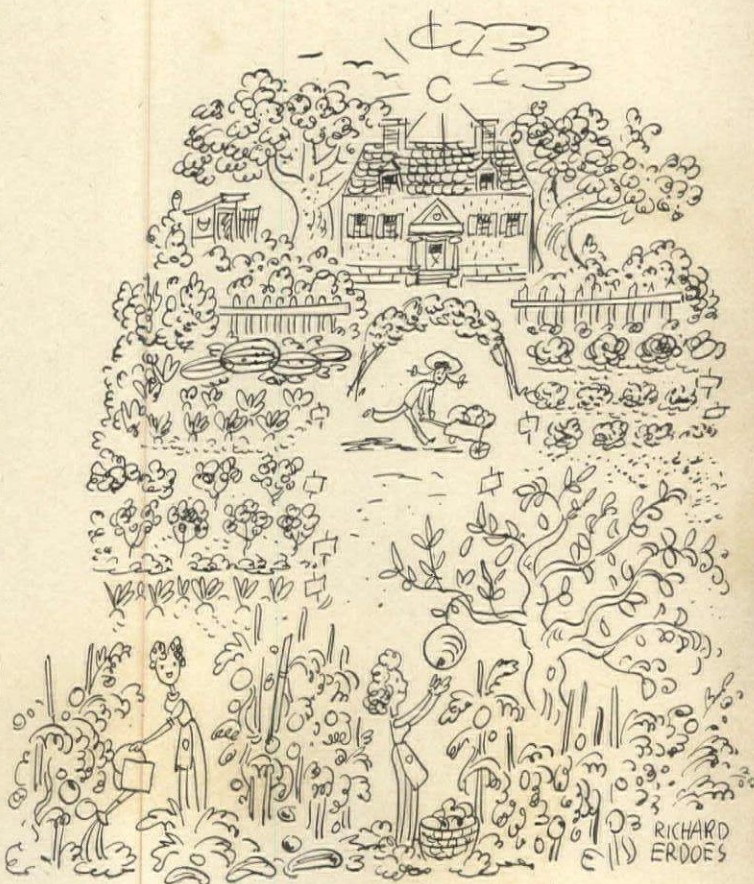 RICHARD
ERDOES